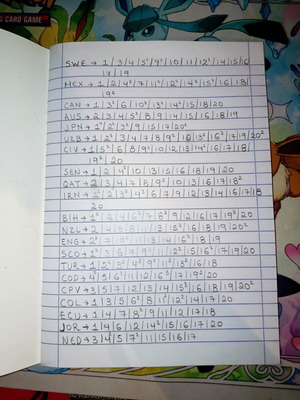 ING CARD GAME
SWE → 1/3/4/5²/9²/10/11/12²/14/15/16
17/19
MEX → 1/2/4²/7/11²/12²/14²/15²/16/18/
19²
CAN → 1/3²/6/10²/13²/14²/15/18/20
AUS → 2/3/4/5²/8/9/14/15/16/18/19
JPN → 1²/2²/3²/9/15/17/20²
UZB → 1/2²/3/4/7/8/9²/10/13²/16²/17/19/20²
CIV → 1/5²/6/8/9²/10/12/13/14²/16/17/18/
19²/20
SEN → 1/2/4²/10/13/15/16/18/19/20
QAT → 2/3/4/7/8/9²/10/13/16/17/18²
IRN → 1²/2/3²/4²/6/7/9/12/13/14/16/17/18
20
BIH → 1²/2/4/6²/7/8²/9/12/16/17/19²/20
NZL → 2/4/5/8/11/13/15²/16/18/19/20²
ENG → 2²/7/10²/11/13/14/16²/18/19
SCO → 1²/3/5/7/9²/11/12²/15/16²/17/19/20
TUR → 1/2²/3²/4²/9²/11²/13²/16/18
COD → 4/5/6²/11/12/16²/17/19²/20
CPV → 3/5/7/12/13/14/15²/16/18/19/20²
COL → 1/3/5/6²/8/11²/12²/14/17/20
ECU → 1/4/7/8²/9/11/12/17/18
JOR → 1/4/6/12/14²/15/16/17/20
NED → 3/4/5/7²/11/15/16/17